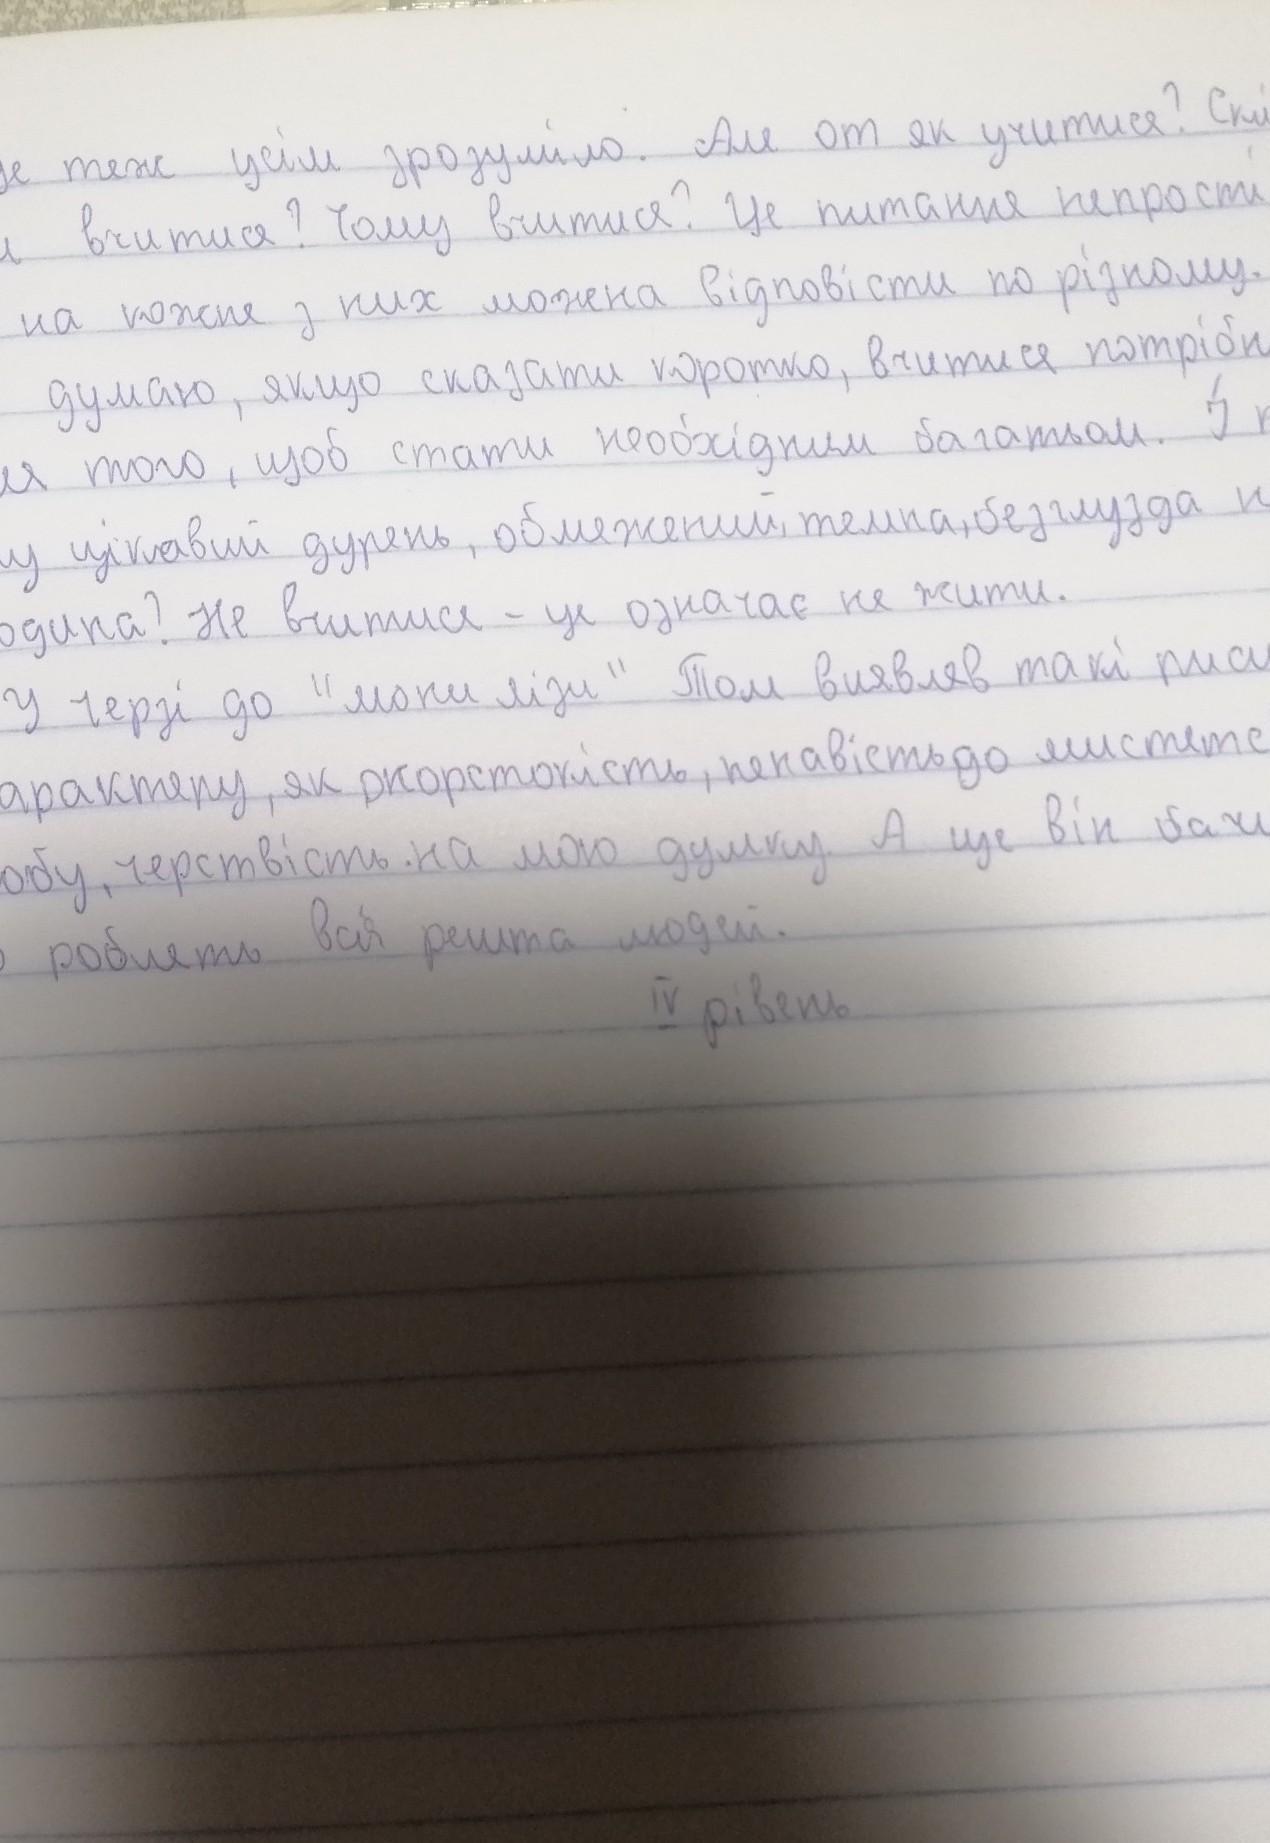 це теж усім зрозуміло. Але от як учитися? Скі
и вчитися? Чому вчитися? Це питання непрості
на кожне з них можна відповісти по різному.
думаю, якщо сказати коротко, вчитися потрібн
ля того, щоб стати необхідним багатьом. І к
му цікавий дурень, обмежений, темна, безглузда н
юдина? Не вчитися - це означає не жити.
У черзі до "мони лізи" Том виявляв такі риси
арактеру, як жорстокість, ненависть до мистетс
обу, черствість.на мою думку. А ще він бачи
о роблять вся решта людей.
IV рівень